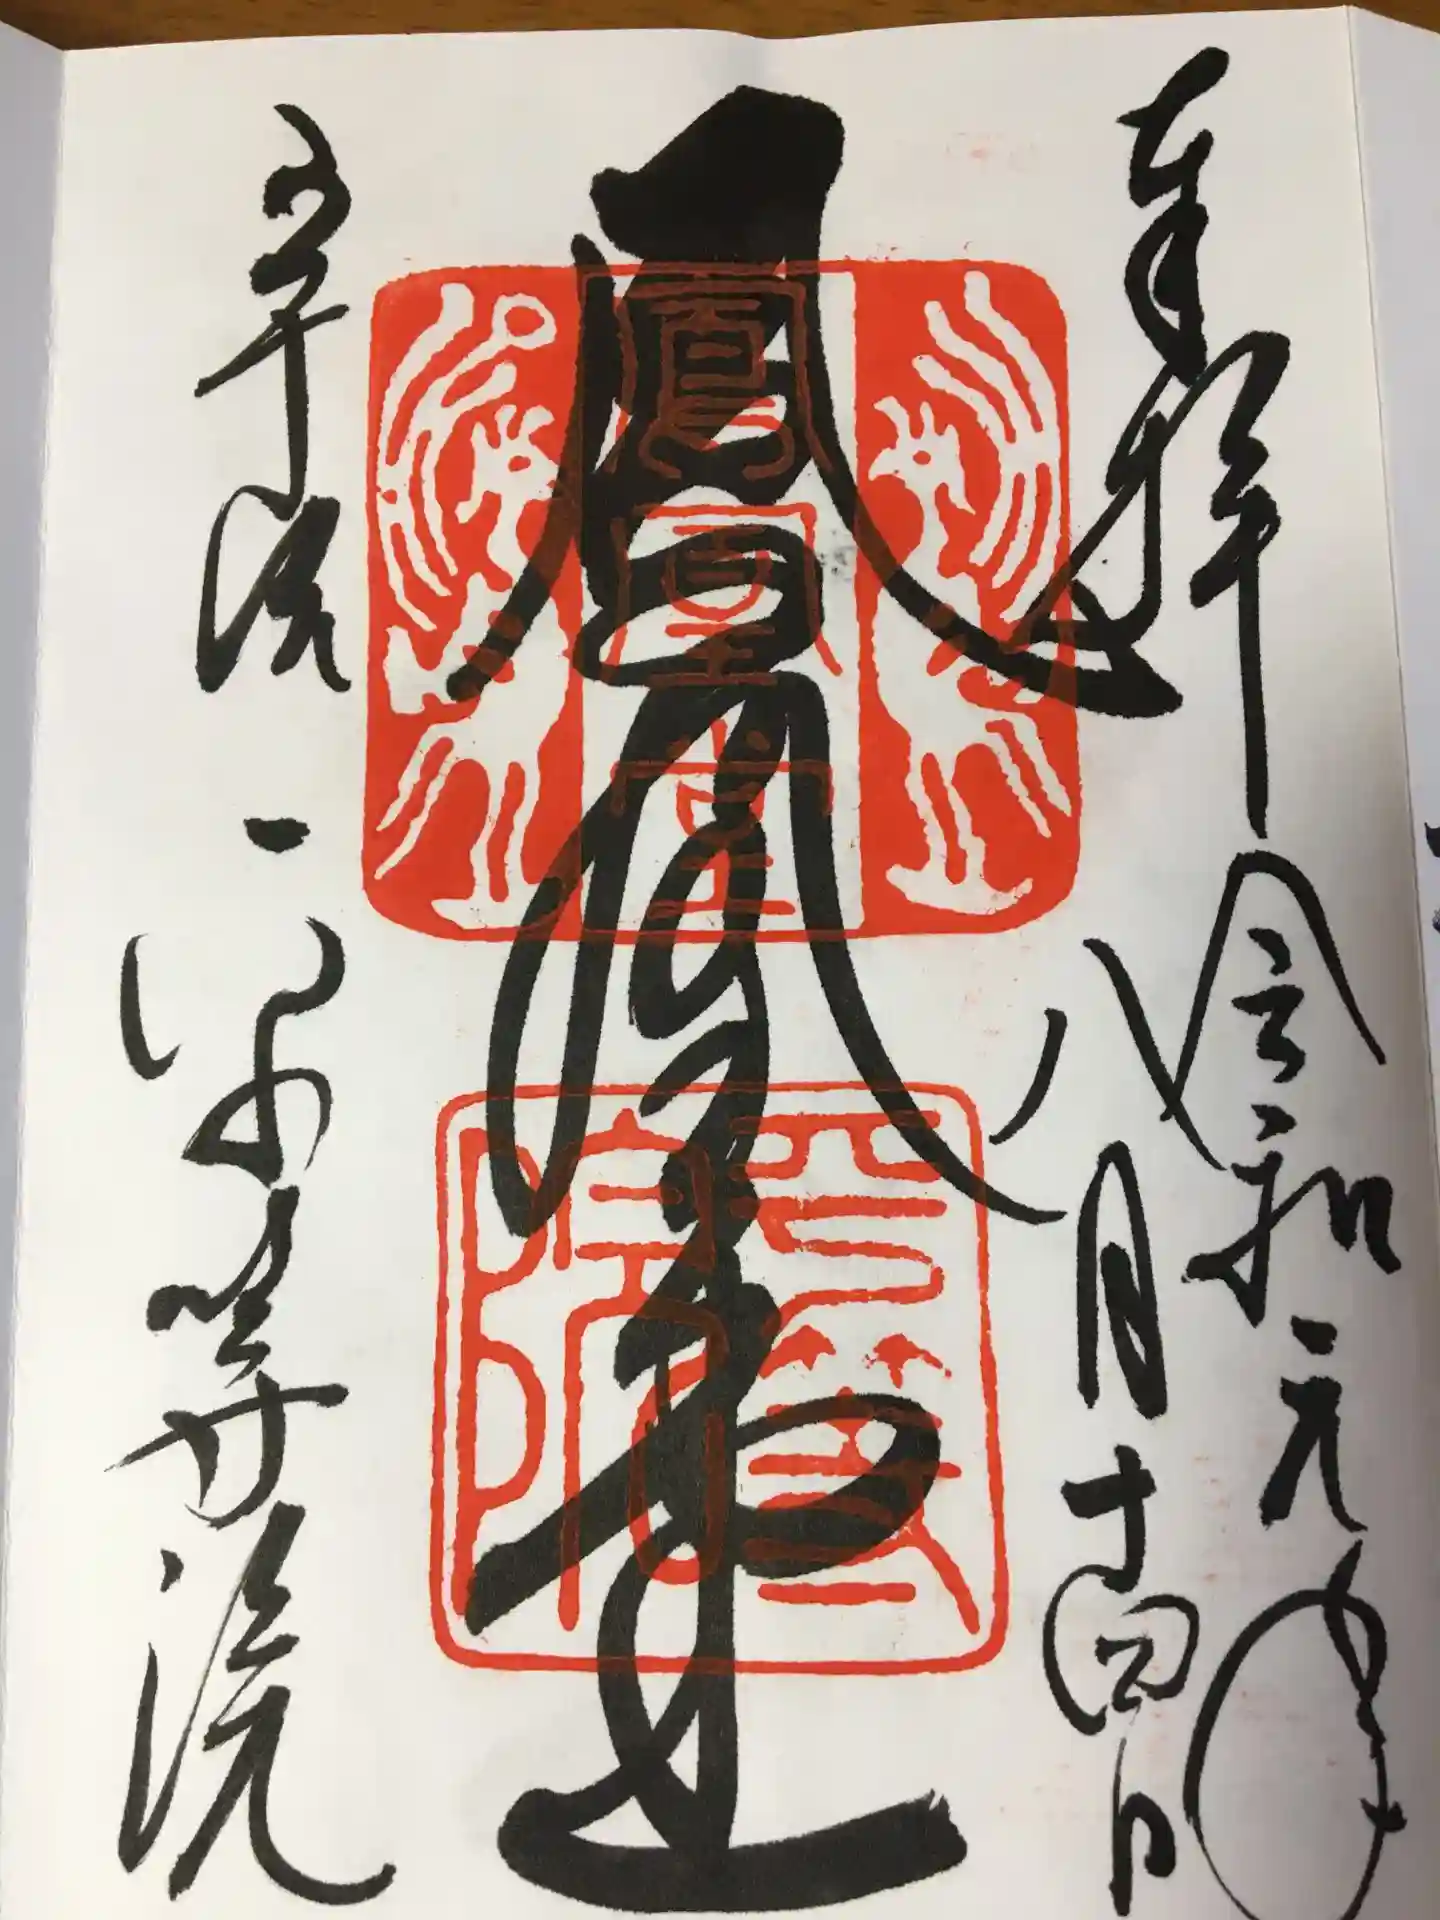 奉拝
令和元年
八月十四日
鳳凰堂
鳳凰堂
宇治
平等院